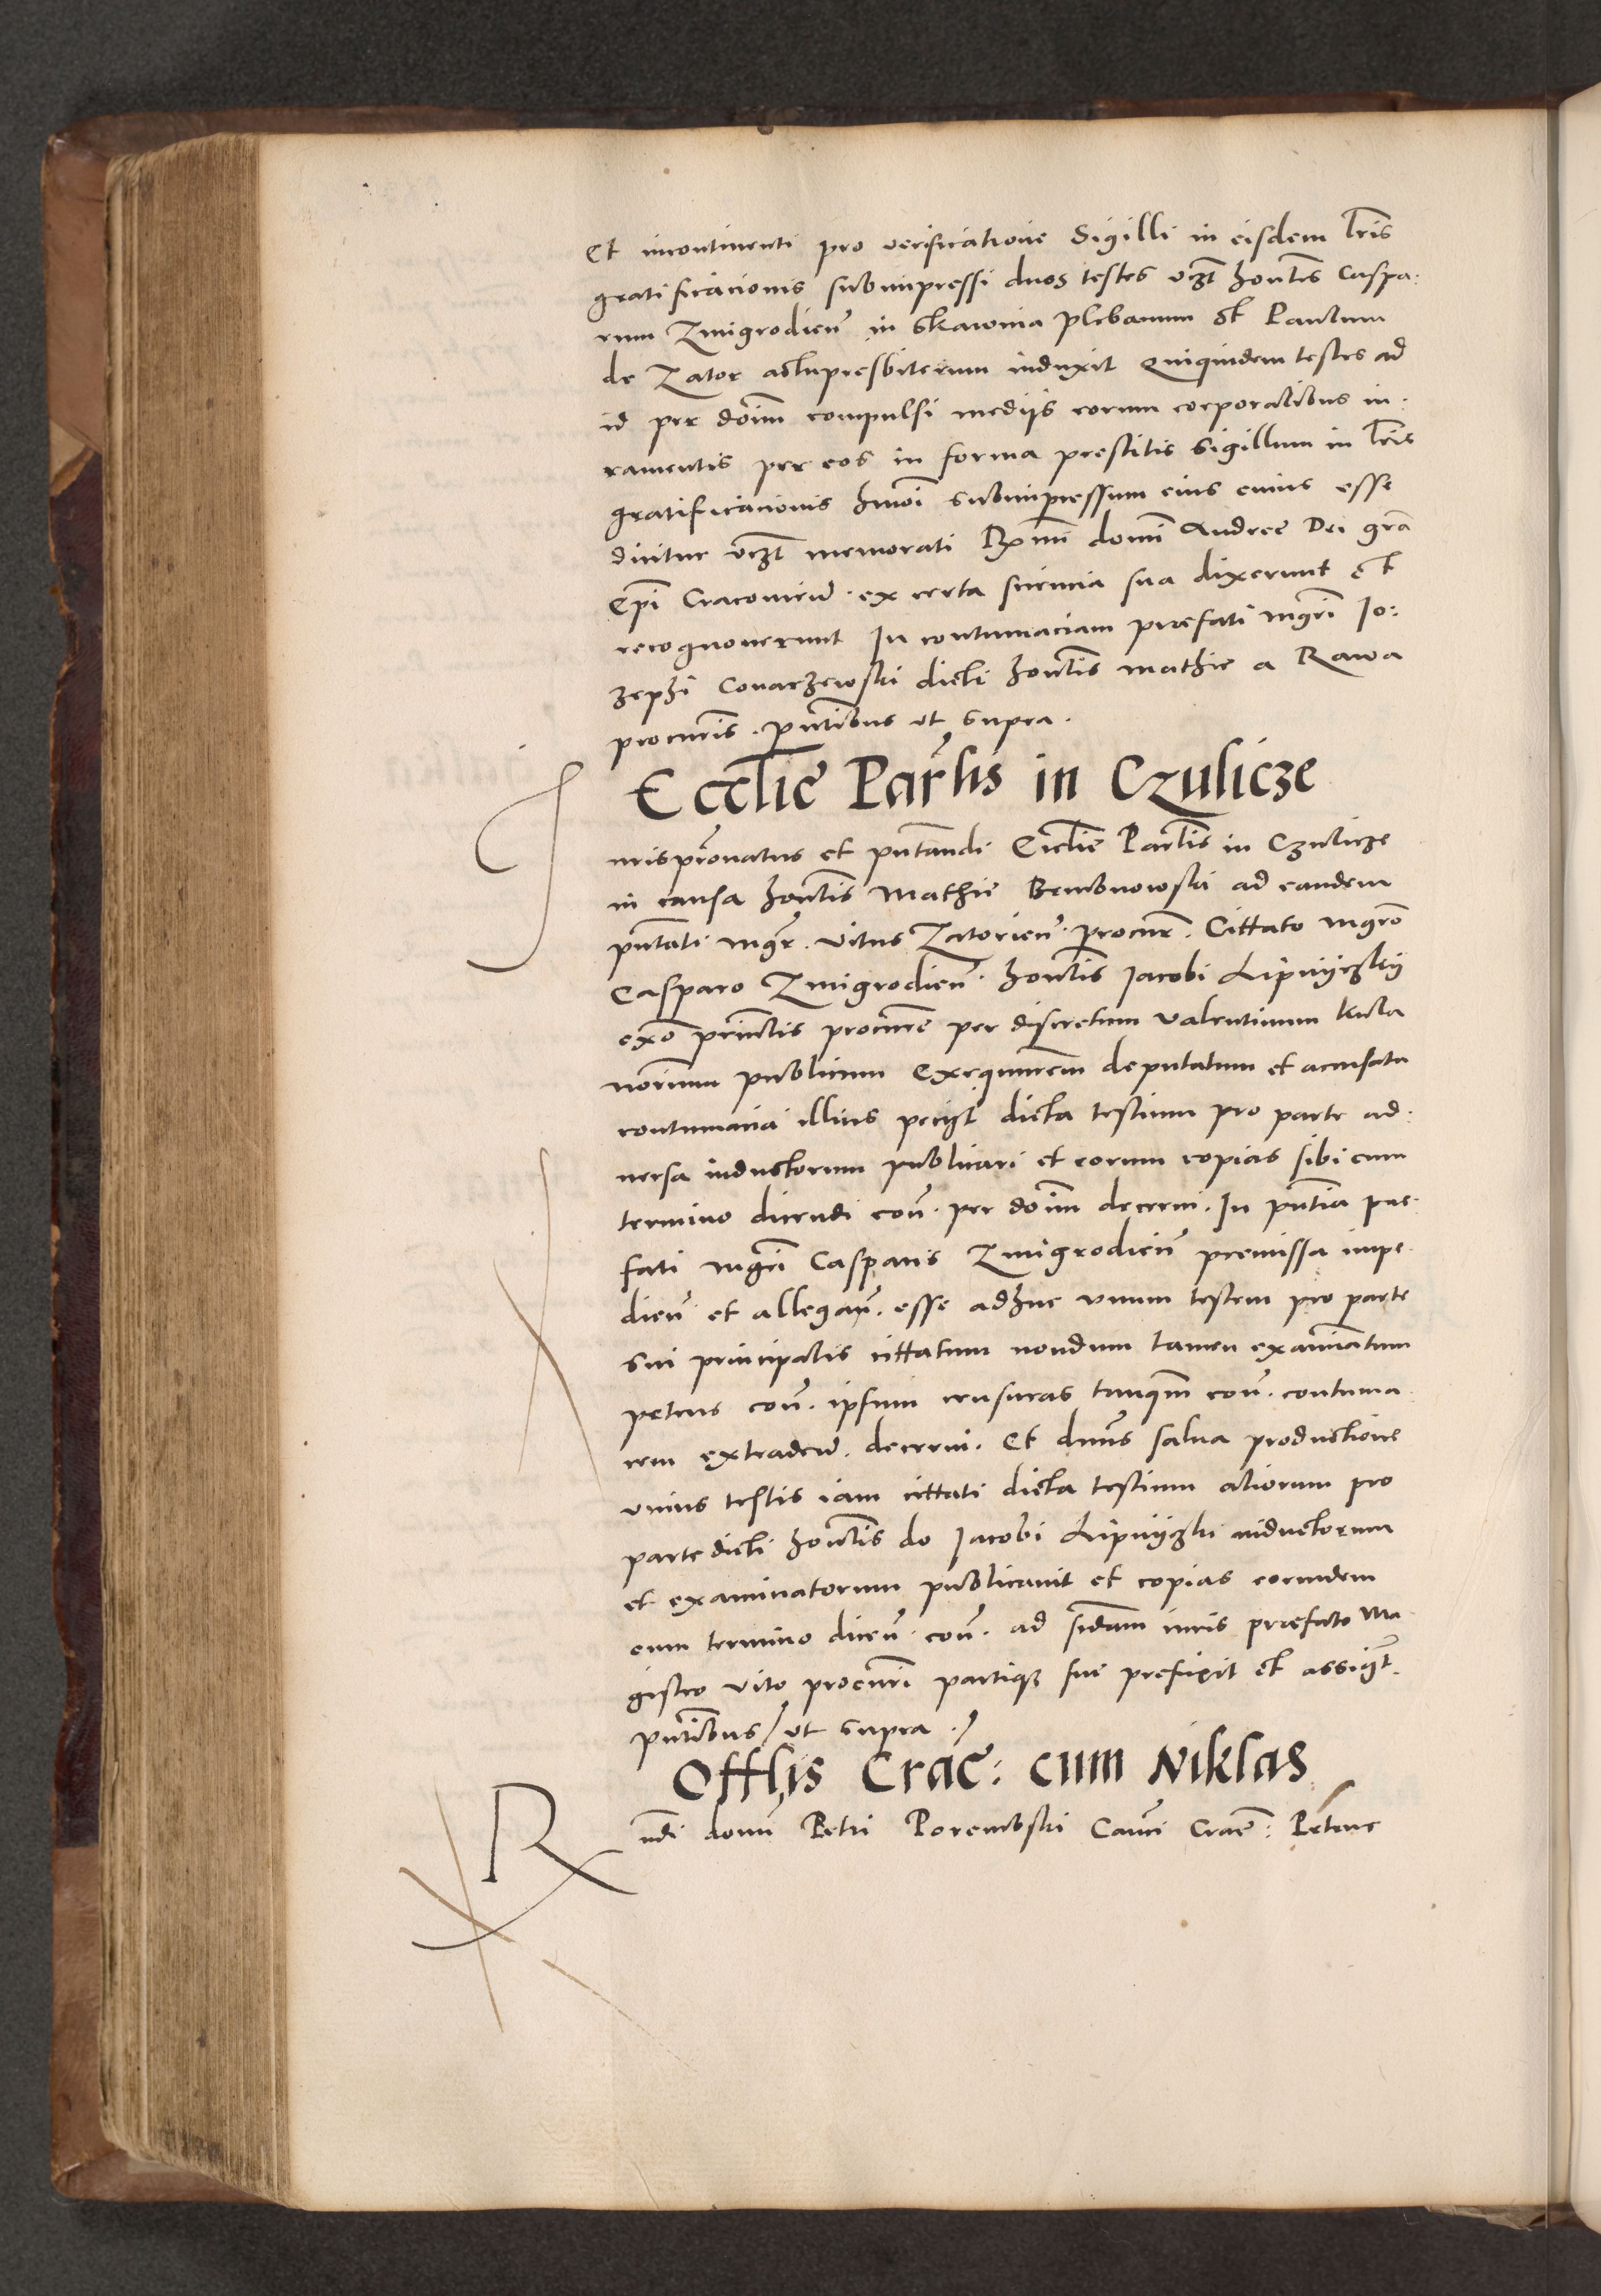 Et incontinenti pro verificatione Sigilli in eisdem lr̄is
gratificacionis subimpressi duos testes vcz̄t hon̄tes Caspa:
rum Zmigrodien̄ in Skawina plebanum et Paulum
de Zator altapresbiterum induxit Quiquidem testes ad
id per dom̄ compulsi mediis eorum corporalibus iu:
ramentis per eos in forma prestitis Sigillum in lr̄is
gratificacionis hm̄oi subimpressum eius cuius esse
dicitur vcz̄t memorati Rx̄mi domī Andree Dei gr̄a
Ep̄i Cracovien̄. ex certa sciencia sua dixerunt et
recognoverunt In contumaciam prefati mgr̄i Io:
zephi Conarzewski dicti hon̄tis Mathie a Rawa
procur̄is. p̄ntibus ut supra.
Eccl̄ie Par̄lis in Czulicze
Jurispr̄onatus et p̄ntandi Eccl̄ie Par̄lis in Czulicze
in causa hon̄tis Mathie Bembnowski ad eandem
p̄ntati mgr̄. Vitus Zatorien̄. procur̄. Cittato mgr̄o
Casparo Zmigrodien̄. hon̄tis Jacobi Lipnyczky
exō prin̄lis procur̄e per discretum Valentinum Kula
not̄rium publicum exequutorem̄ deputatum et accusata
contumacia illius peciit dicta testium pro parte ad:
versa inductorum publicari et eorum copias sibi cum
termino dicendi con̄. per dom̄ decerni. In p̄ntia pre:
fati mgr̄i Casparis Zmigrodien̄ premissa impe:
dien̄ et allegan̄. esse adhuc unum testem pro parte
sui principalis cittatum nondum tamen examinatum
petens con̄. ipsum censuras tanq̄m con̄. contuma
cem extraden̄. decerni. Et dn̄us salva productione
unius testis iam cittati dicta testium aliorum pro
parte dicti hon̄tis do Jacobi Lipnyczki inductorum
et examinatorum publicavit et copias eorundem
cum termino dicen̄. con̄. ad s̄dam iuris prefato Ma
gistro Vito procur̄i partiq̄ sue prefixit et assiḡt.
p̄ntibus / ut supra ./
Offl̄is Crac̄: cum Niklas
R ndi domī Petri Porembski Can̄ci Crac̄: Petrus